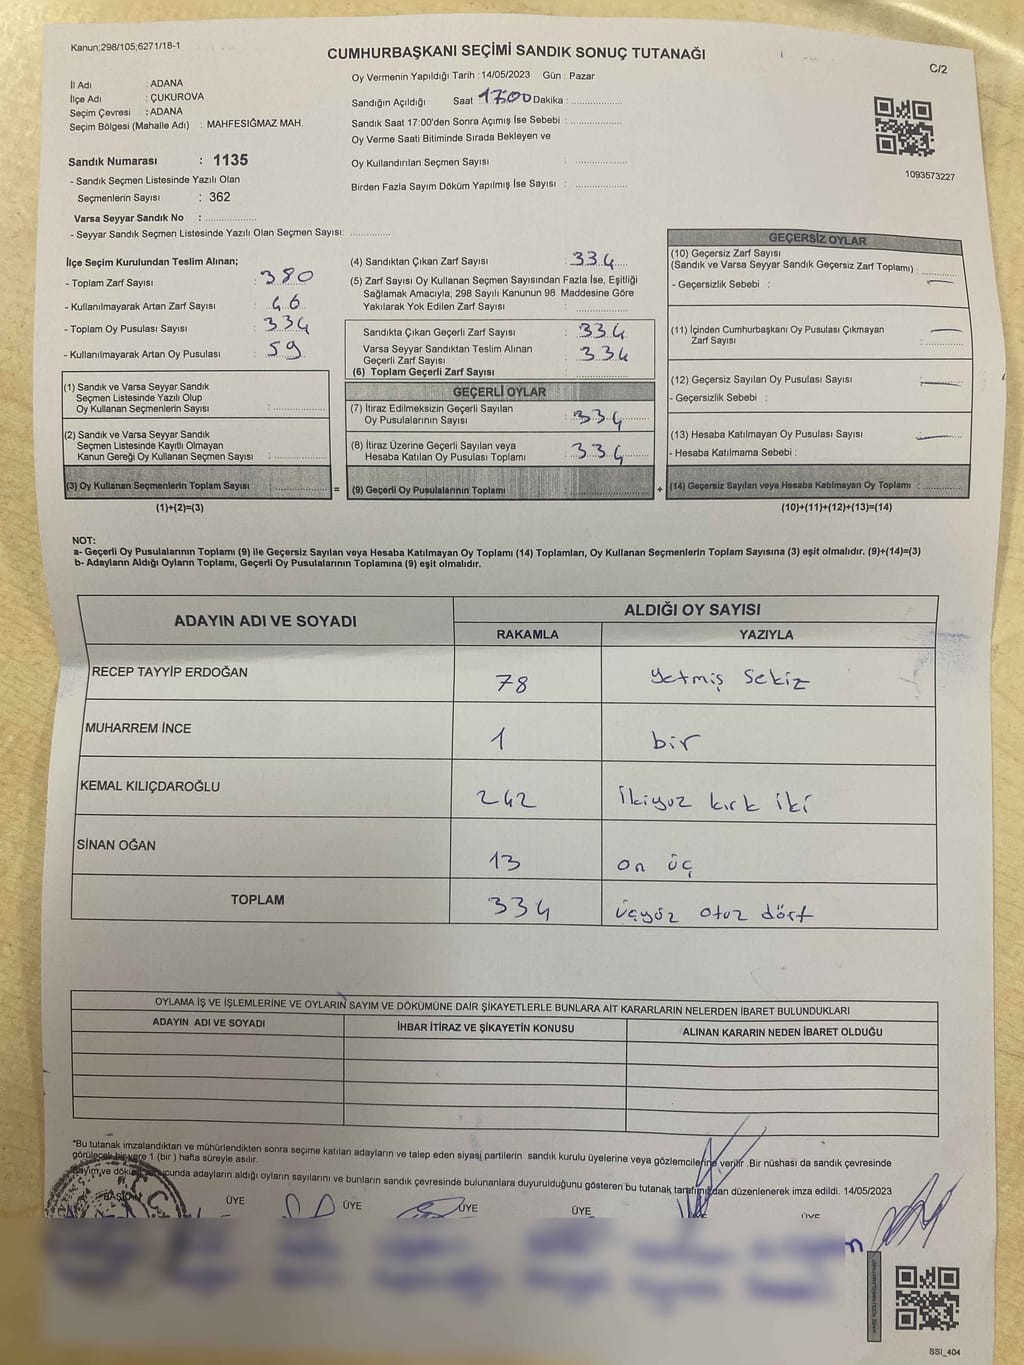 Kanun;298/105;6271/18-1
CUMHURBAŞKANI SEÇİMİ SANDIK SONUÇ TUTANAĞI
C/2
İl Adı : ADANA
İlçe Adı : ÇUKUROVA
Seçim Çevresi : ADANA
Seçim Bölgesi (Mahalle Adı) : MAHFESIĞMAZ MAH.
Sandık Numarası : 1135
- Sandık Seçmen Listesinde Yazılı Olan
Seçmenlerin Sayısı : 362
Varsa Seyyar Sandık No : ..................
- Seyyar Sandık Seçmen Listesinde Yazılı Olan Seçmen Sayısı: ..............
Oy Vermenin Yapıldığı Tarih : 14/05/2023 Gün : Pazar
Sandığın Açıldığı Saat 17:00 Dakika : ..................
Sandık Saat 17:00'den Sonra Açımış İse Sebebi : ..................
Oy Verme Saati Bitiminde Sırada Bekleyen ve
Oy Kullandırılan Seçmen Sayısı : ..................
Birden Fazla Sayım Döküm Yapılmış İse Sayısı : ..................
1093573227
İlçe Seçim Kurulundan Teslim Alınan;
- Toplam Zarf Sayısı : 380
- Kullanılmayarak Artan Zarf Sayısı : 46
- Toplam Oy Pusulası Sayısı : 334
- Kullanılmayarak Artan Oy Pusulası : 59
(1) Sandık ve Varsa Seyyar Sandık
Seçmen Listesinde Yazılı Olup
Oy Kullanan Seçmenlerin Sayısı : ..................
(2) Sandık ve Varsa Seyyar Sandık
Seçmen Listesinde Kayıtlı Olmayan
Kanun Gereği Oy Kullanan Seçmen Sayısı : ..................
(3) Oy Kullanan Seçmenlerin Toplam Sayısı : .................. =
(1)+(2)=(3)
(4) Sandıktan Çıkan Zarf Sayısı : 334
(5) Zarf Sayısı Oy Kullanan Seçmen Sayısından Fazla İse, Eşitliği
Sağlamak Amacıyla, 298 Sayılı Kanunun 98. Maddesine Göre
Yakılarak Yok Edilen Zarf Sayısı : ..................
Sandıkta Çıkan Geçerli Zarf Sayısı : 334
Varsa Seyyar Sandıktan Teslim Alınan
Geçerli Zarf Sayısı : 334
(6) Toplam Geçerli Zarf Sayısı : ..................
GEÇERLİ OYLAR
(7) İtiraz Edilmeksizin Geçerli Sayılan
Oy Pusulalarının Sayısı : 334
(8) İtiraz Üzerine Geçerli Sayılan veya
Hesaba Katılan Oy Pusulası Toplamı : 334
(9) Geçerli Oy Pusulalarının Toplamı : .................. +
GEÇERSİZ OYLAR
(10) Geçersiz Zarf Sayısı
(Sandık ve Varsa Seyyar Sandık Geçersiz Zarf Toplamı) : ..........
- Geçersizlik Sebebi : —
(11) İçinden Cumhurbaşkanı Oy Pusulası Çıkmayan
Zarf Sayısı : —
(12) Geçersiz Sayılan Oy Pusulası Sayısı : —
- Geçersizlik Sebebi :
(13) Hesaba Katılmayan Oy Pusulası Sayısı : —
- Hesaba Katılmama Sebebi :
(14) Geçersiz Sayılan veya Hesaba Katılmayan Oy Toplamı : ..........
(10)+(11)+(12)+(13)=(14)
NOT:
a- Geçerli Oy Pusulalarının Toplamı (9) ile Geçersiz Sayılan veya Hesaba Katılmayan Oy Toplamı (14) Toplamları, Oy Kullanan Seçmenlerin Toplam Sayısına (3) eşit olmalıdır. (9)+(14)=(3)
b- Adayların Aldığı Oyların Toplamı, Geçerli Oy Pusulalarının Toplamına (9) eşit olmalıdır.
ADAYIN ADI VE SOYADI ALDIĞI OY SAYISI
RAKAMLA YAZIYLA
RECEP TAYYİP ERDOĞAN 78 yetmiş sekiz
MUHARREM İNCE 1 bir
KEMAL KILIÇDAROĞLU 242 İkiyüz kırk iki
SİNAN OĞAN 13 on üç
TOPLAM 334 üçyüz otuz dört
OYLAMA İŞ VE İŞLEMLERİNE VE OYLARIN SAYIM VE DÖKÜMÜNE DAİR ŞİKAYETLERLE BUNLARA AİT KARARLARIN NELERDEN İBARET BULUNDUKLARI
ADAYIN ADI VE SOYADI İHBAR İTİRAZ VE ŞİKAYETİN KONUSU ALINAN KARARIN NEDEN İBARET OLDUĞU
*Bu tutanak imzalandıktan ve mühürlendikten sonra seçime katılan adayların ve talep eden siyasi partilerin sandık kurulu üyelerine veya gözlemcilerine verilir .Bir nüshası da sandık çevresinde
görülecek bir yere 1 (bir ) hafta süreyle asılır.
Sayım ve döküm sonucunda adayların aldığı oyların sayılarını ve bunların sandık çevresinde bulunanlara duyurulduğunu gösteren bu tutanak tarafımızdan düzenlenerek imza edildi. 14/05/2023
BAŞKAN ÜYE ÜYE ÜYE ÜYE ÜYE
SSI_404